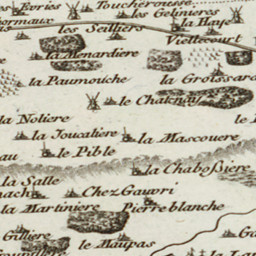 Evries Toucherousse
les Gelinieres
ormaux les Seilliers la Haye
Viellecourt
la Menardiere
la Paumouche la Groissard
le Chatenay
la Noliere
la Joucatiere la Mascouere
au le Pible
la Chaboßiere
la Salle
Chez Gauvri
la Martiniere Pierre blanche
Gilliere
le Maupas